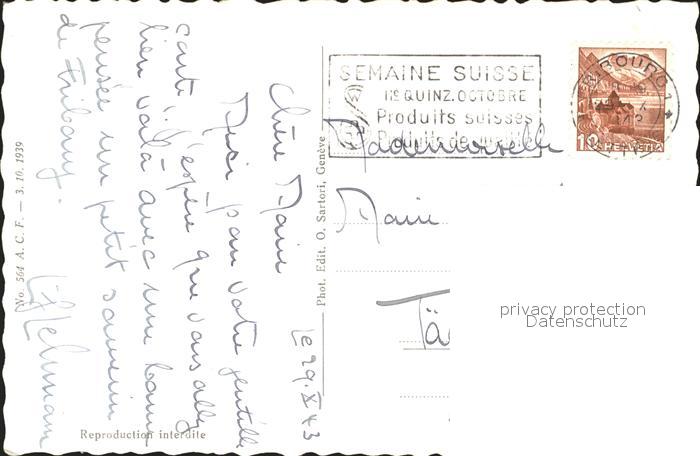 Le 29. X 43
Chère Marie
Merci pour votre gentille
carte. J'espère que vous allez
bien voilà avec une bonne
pensée un petit souvenir
de Fribourg.
Lehmann
No. 564 A. C. F. — 3. 10. 1939
Reproduction interdite
Phot. Edit. O. Sartori, Genève
SEMAINE SUISSE
IIE QUINZ. OCTOBRE
Produits suisses
Produits de
FRIBOURG 1
10 HELVETIA
Mademoiselle
Marie
Tä
privacy protection
Datenschutz